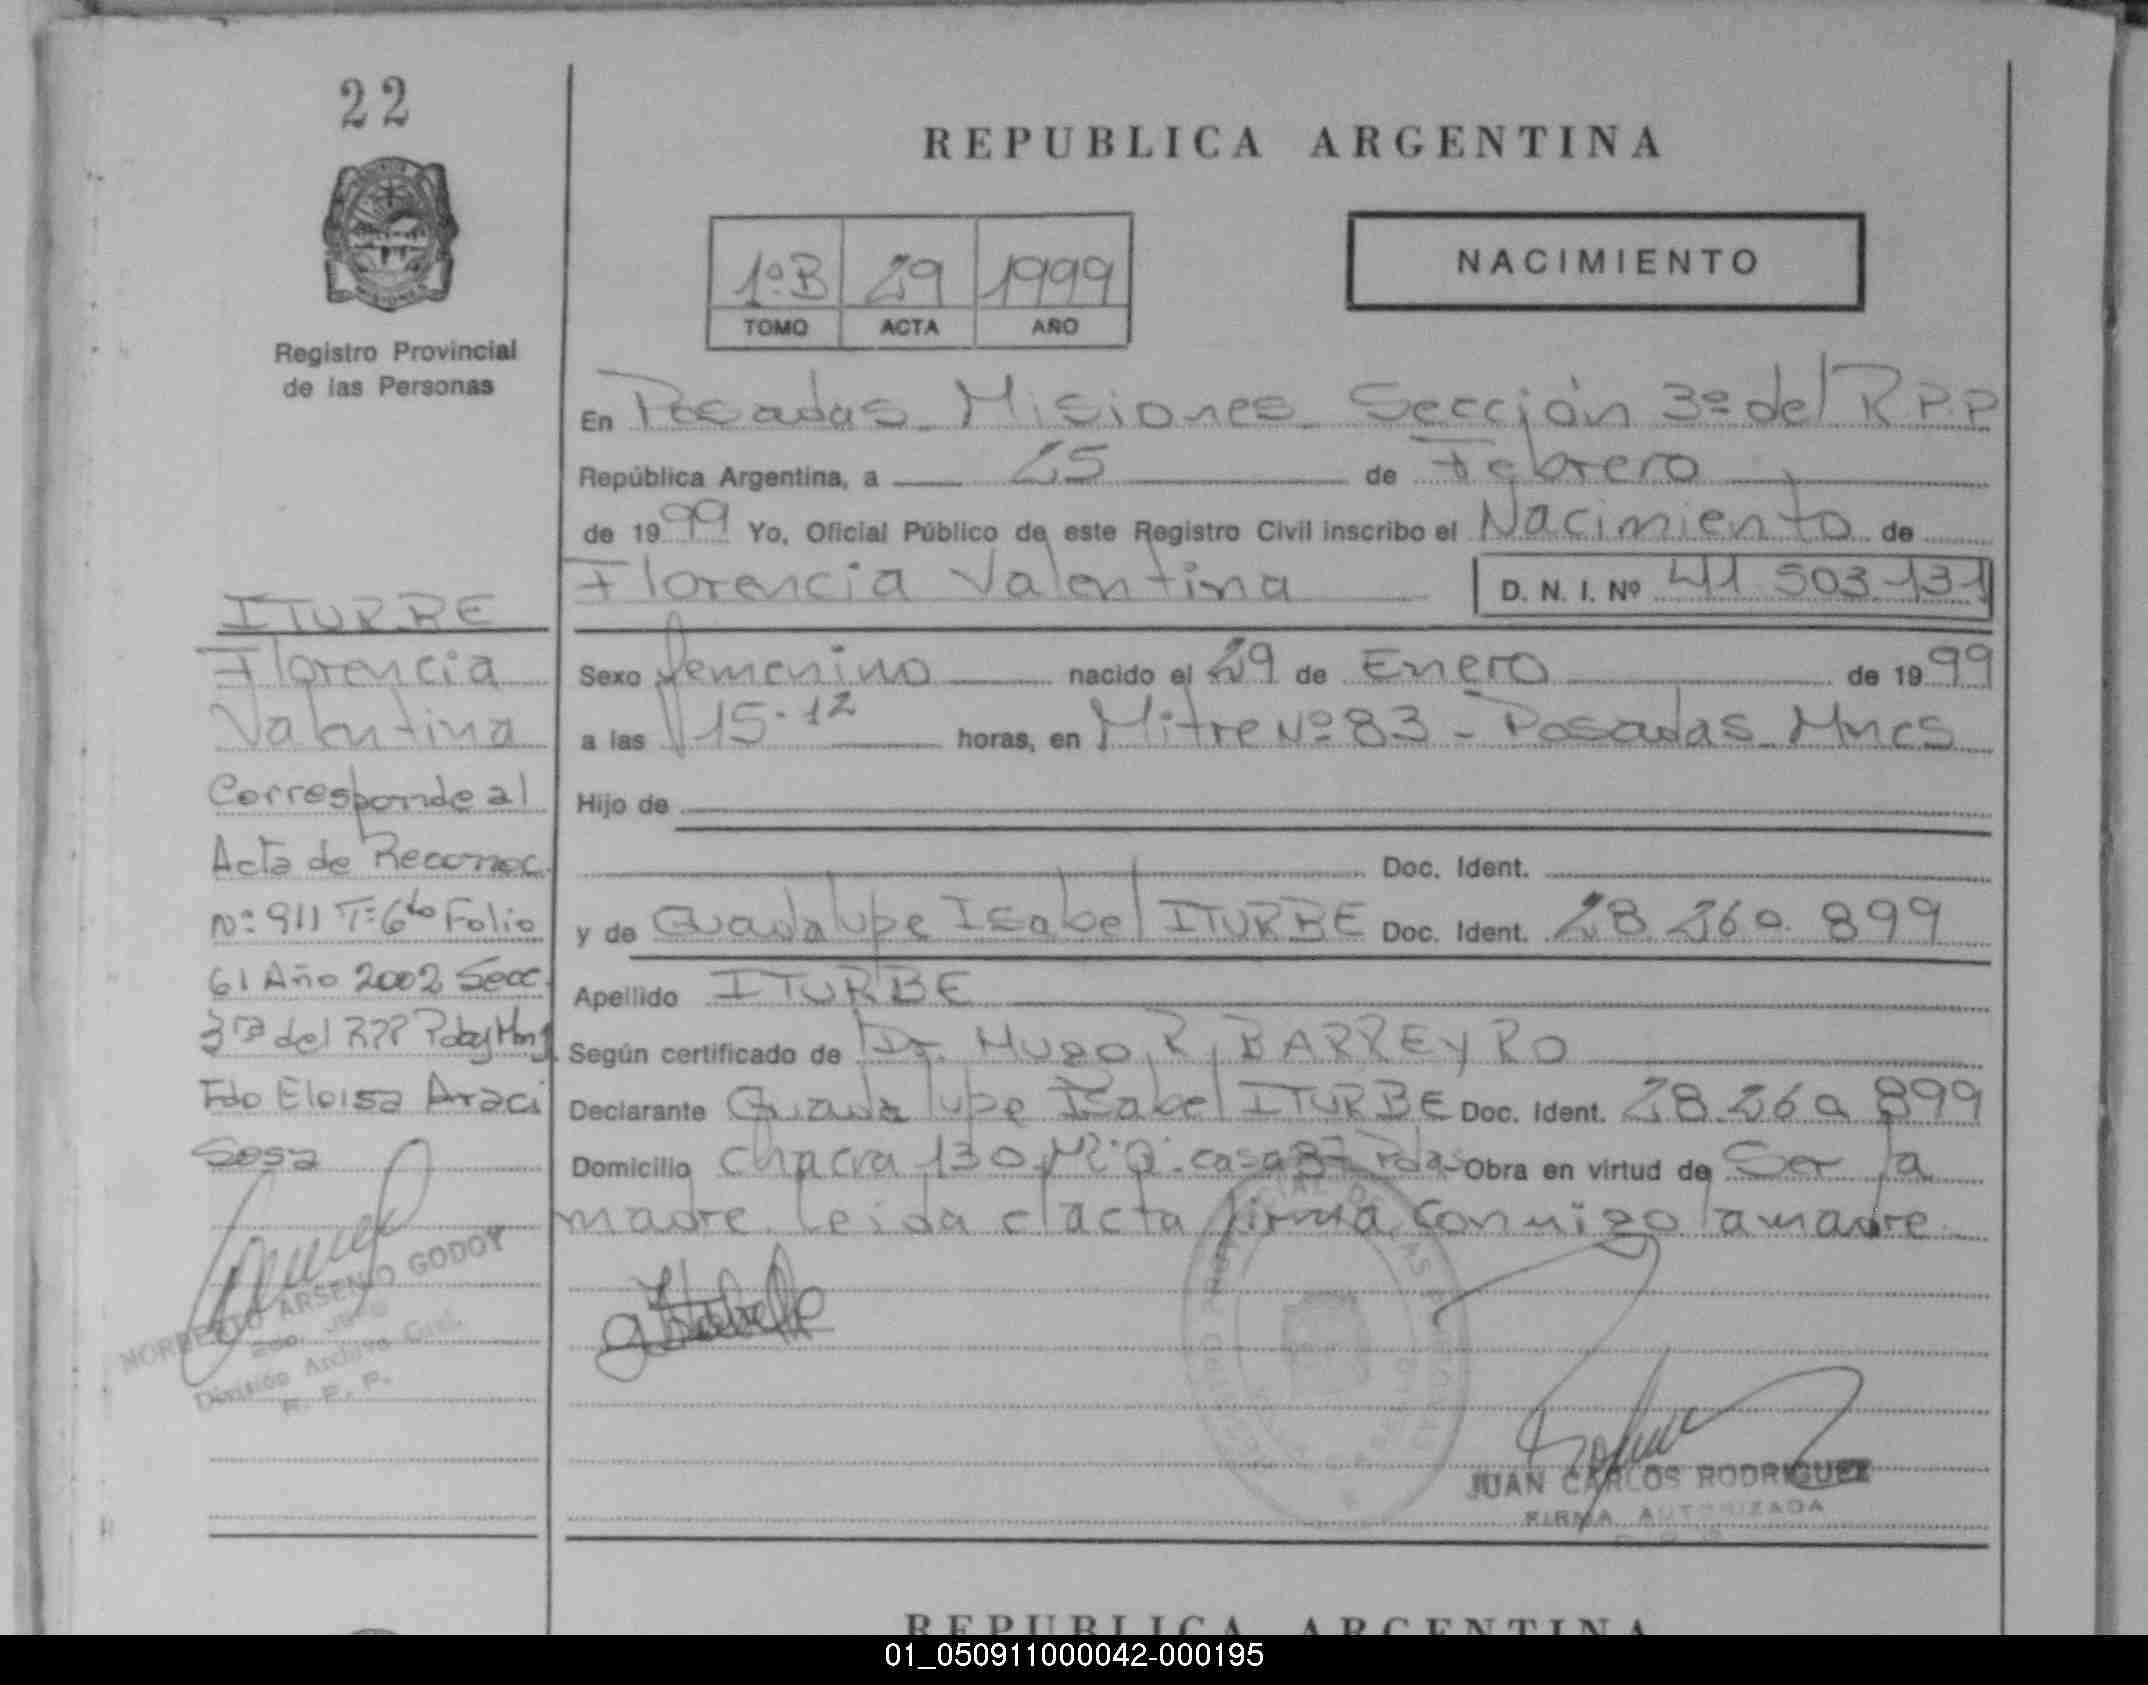 22
Registro Provincial
de las Personas
ITURBE
Florencia
Valentina
Corresponde al
Acta de Reconoc.
Nº: 911 Tº: 6to Folio
61 Año 2002 Secc.
3ra del RPP Pdas y Mns.
Fdo Eloisa Araci
Sosa
NORBERTO ARSENIO GODOY
2do. Jefe
División Archivo Gral.
R. P. P.
REPUBLICA ARGENTINA
1º B 29 1999
TOMO ACTA AÑO
NACIMIENTO
En Posadas Misiones Sección 3º del R.P.P
República Argentina, a 25 de Febrero
de 1999 Yo, Oficial Público de este Registro Civil inscribo el Nacimiento de
Florencia Valentina D. N. I. Nº 41 503 131
Sexo femenino nacido el 29 de Enero de 1999
a las 15.12 horas, en Mitre Nº 83 - Posadas Mnes
Hijo de
Doc. Ident.
y de Guadalupe Isabel ITURBE Doc. Ident. 28 260. 899
Apellido ITURBE
Según certificado de Dr. Hugo R. BARREYRO
Declarante Guadalupe Isabel ITURBE Doc. Ident. 28.260 899
Domicilio chacra 130 Mz. Q. casa 87 Pdas Obra en virtud de Ser la
madre. Leida el acta firma conmigo la madre
JUAN CARLOS RODRIGUEZ
FIRMA AUTORIZADA
REPUBLICA ARGENTINA
01_050911000042-000195